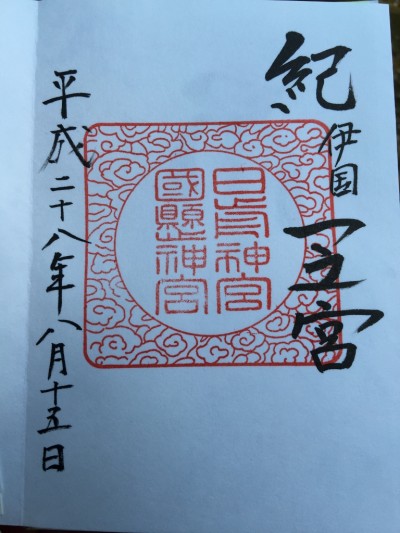 紀伊国一之宮
日前神宮
國懸神宮
平成二十八年八月十五日